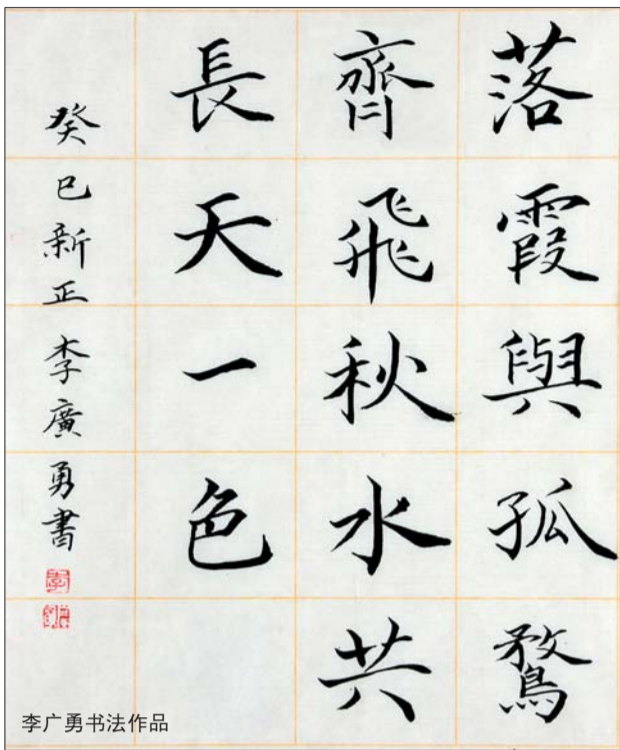 落霞與孤鶩
齊飛秋水共
長天一色
癸巳新正李廣勇書
李广勇书法作品